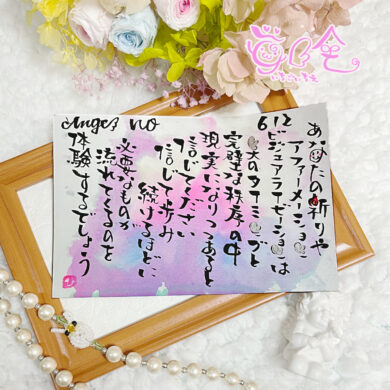 Angel no 612
あなたの祈りや
アファーメーション
ビジュアライゼーションは
天のタイミングと
完璧な秩序の中
現実になりつつあると
信じてください
信じて歩み
続けるほどに
必要なものが
流れてくるのを
体験するでしょう